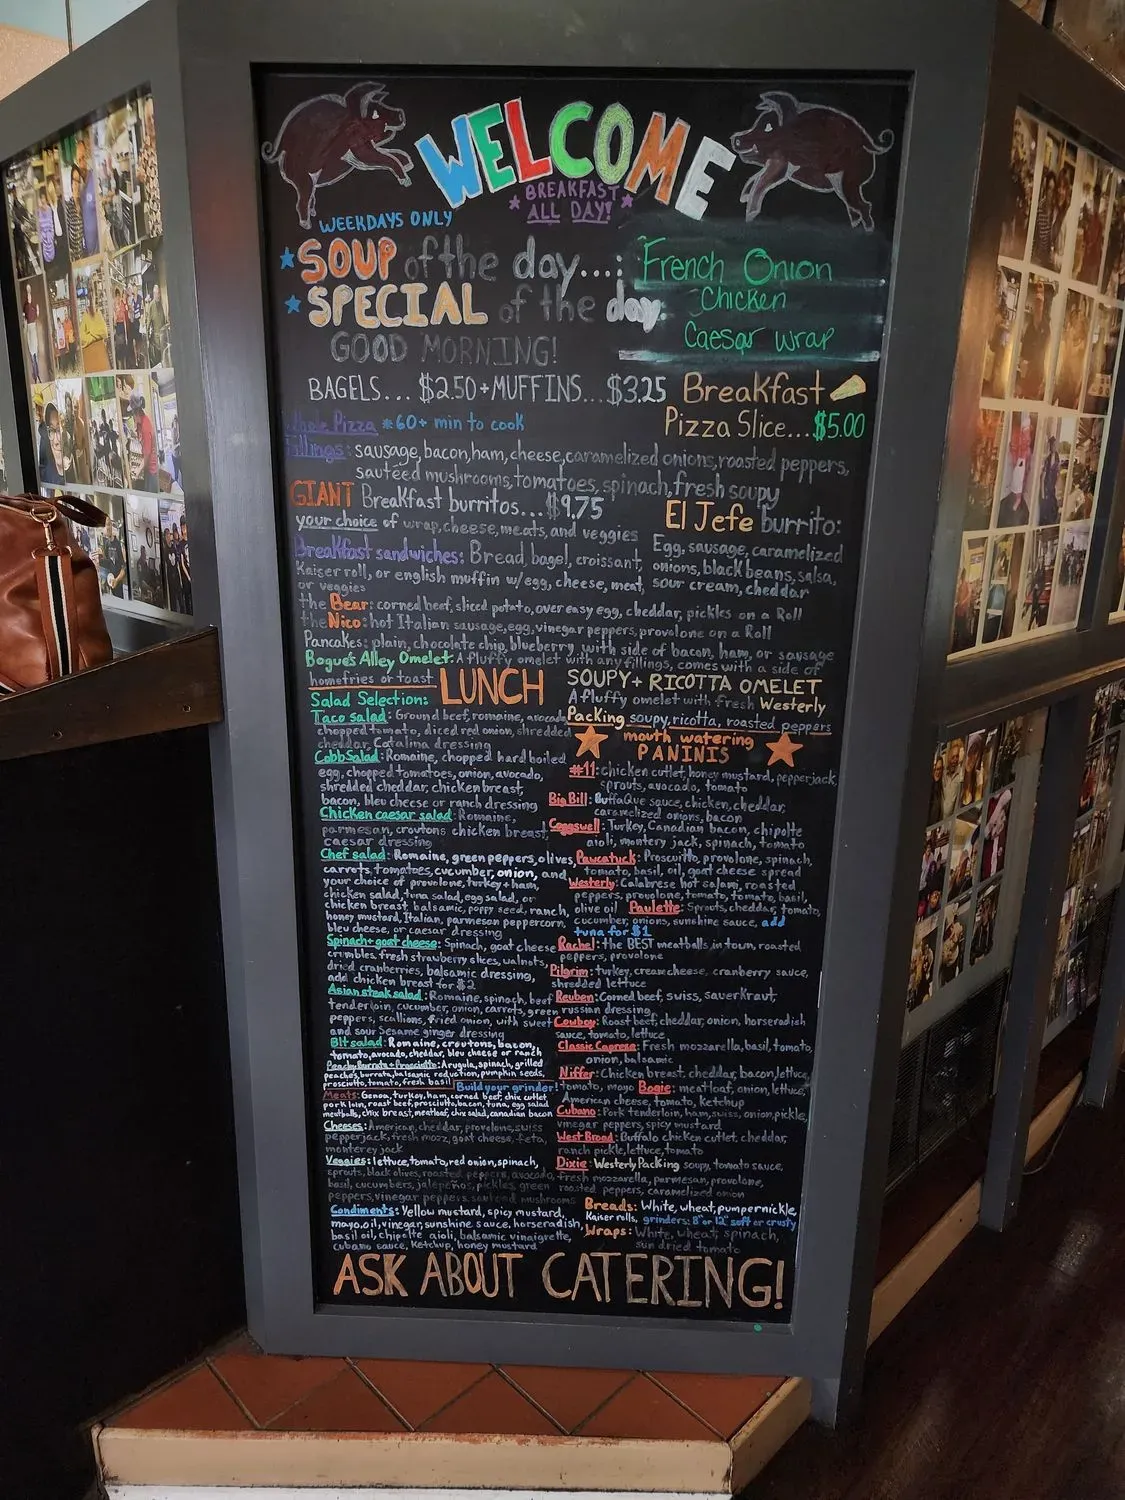 WELCOME
BREAKFAST
ALL DAY!
WEEKDAYS ONLY
SOUP of the day...: French Onion
SPECIAL of the day: Chicken
Caesar wrap
GOOD MORNING!
BAGELS... $2.50 + MUFFINS... $3.25
Breakfast
Pizza Slice... $5.00
Whole Pizza *60+ min to cook
Fillings: sausage, bacon, ham, cheese, caramelized onions, roasted peppers,
sautéed mushrooms, tomatoes, spinach, fresh soupy
GIANT Breakfast burritos... $9.75
your choice of wrap, cheese, meats, and veggies
El Jefe burrito:
Egg, sausage, caramelized
onions, black beans, salsa,
sour cream, cheddar
Breakfast sandwiches: Bread, bagel, croissant,
Kaiser roll, or english muffin w/ egg, cheese, meat,
or veggies
the Bear: corned beef, sliced potato, over easy egg, cheddar, pickles on a Roll
the Nico: hot Italian sausage, egg, vinegar peppers, provolone on a Roll
Pancakes: plain, chocolate chip, blueberry, with side of bacon, ham, or sausage
Bogue's Alley Omelet: A fluffy omelet with any fillings, comes with a side of
homefries or toast
SOUPY + RICOTTA OMELET
A fluffy omelet with fresh Westerly
Packing soupy, ricotta, roasted peppers
LUNCH
Salad Selection:
Taco salad: Ground beef, romaine, avocado,
chopped tomato, diced red onion, shredded
cheddar, Catalina dressing
Cobb Salad: Romaine, chopped hard boiled
egg, chopped tomatoes, onion, avocado,
shredded cheddar, chicken breast,
bacon, bleu cheese or ranch dressing
Chicken caesar salad: Romaine,
parmesan, croutons chicken breast,
caesar dressing
Chef salad: Romaine, green peppers, olives,
carrots, tomatoes, cucumber, onion, and
your choice of provolone, turkey + ham,
chicken salad, tuna salad, egg salad, or
chicken breast balsamic, poppy seed, ranch,
honey mustard, Italian, parmesan peppercorn,
bleu cheese, or caesar dressing
Spinach + goat cheese: Spinach, goat cheese
crumbles, fresh strawberry slices, walnuts,
dried cranberries, balsamic dressing,
add chicken breast for $2
Asian steak salad: Romaine, spinach, beef
tenderloin, cucumber, onion, carrots, green
peppers, scallions, fried onion, with sweet
and sour Sesame ginger dressing
Blt salad: Romaine, croutons, bacon,
tomato, avocado, cheddar, bleu cheese or ranch
Peachy Burrata + Prosciutto: Arugula, spinach, grilled
peaches, burrata, balsamic reduction, pumpkin seeds,
prosciutto, tomato, fresh basil
Build your grinder!
Meats: Genoa, turkey, ham, corned beef, chix cutlet
pork loin, roast beef, prosciutto, bacon, tuna, egg salad
meatballs, chix breast, meatloaf, chix salad, canadian bacon
Cheeses: American, cheddar, provolone, swiss
pepperjack, fresh mozz, goat cheese, feta,
monterey jack
Veggies: lettuce, tomato, red onion, spinach,
sprouts, black olives, roasted peppers, avocado,
basil, cucumbers, jalepeños, pickles, green
peppers, vinegar peppers, sauteed mushrooms
Condiments: Yellow mustard, spicy mustard,
mayo, oil, vinegar, sunshine sauce, horseradish,
basil oil, chipotle aioli, balsamic vinaigrette,
cubano sauce, Ketchup, honey mustard
mouth watering
PANINIS
#11: chicken cutlet, honey mustard, pepperjack,
sprouts, avocado, tomato
Big Bill: BuffaQue sauce, chicken, cheddar,
caramelized onions, bacon
Coggswell: Turkey, Canadian bacon, chipolte
aioli, montery jack, spinach, tomato
Pawcatuck: Proscuitto, provolone, spinach,
tomato, basil, oil, goat cheese spread
Westerly: Calabrese hot salami, roasted
peppers, provolone, tomato, tomato, basil,
olive oil
Paulette: Sprouts, cheddar, tomato,
cucumber, onions, sunshine sauce, add
tuna for $1
Rachel: the BEST meatballs in town, roasted
peppers, provolone
Pilgrim: turkey, cream cheese, cranberry sauce,
shredded lettuce
Reuben: Corned beef, swiss, sauerkraut,
russian dressing
Cowboy: Roast beef, cheddar, onion, horseradish
sauce, tomato, lettuce
Classic Caprese: Fresh mozzarella, basil, tomato,
onion, balsamic
Niffer: Chicken breast, cheddar, bacon, lettuce,
tomato, mayo
Bogie: meatloaf, onion, lettuce,
American cheese, tomato, Ketchup
Cubano: Pork tenderloin, ham, swiss, onion, pickle,
vinegar peppers, spicy mustard
West Broad: Buffalo chicken cutlet, cheddar,
ranch pickle, lettuce, tomato
Dixie: Westerly Packing soupy, tomato sauce,
fresh mozzarella, parmesan, provolone,
roasted peppers, caramelized onion
Breads: White, wheat, pumpernickle,
Kaiser rolls, grinders: 8" or 12" soft or crusty
Wraps: White, wheat, spinach,
sun dried tomato
ASK ABOUT CATERING!